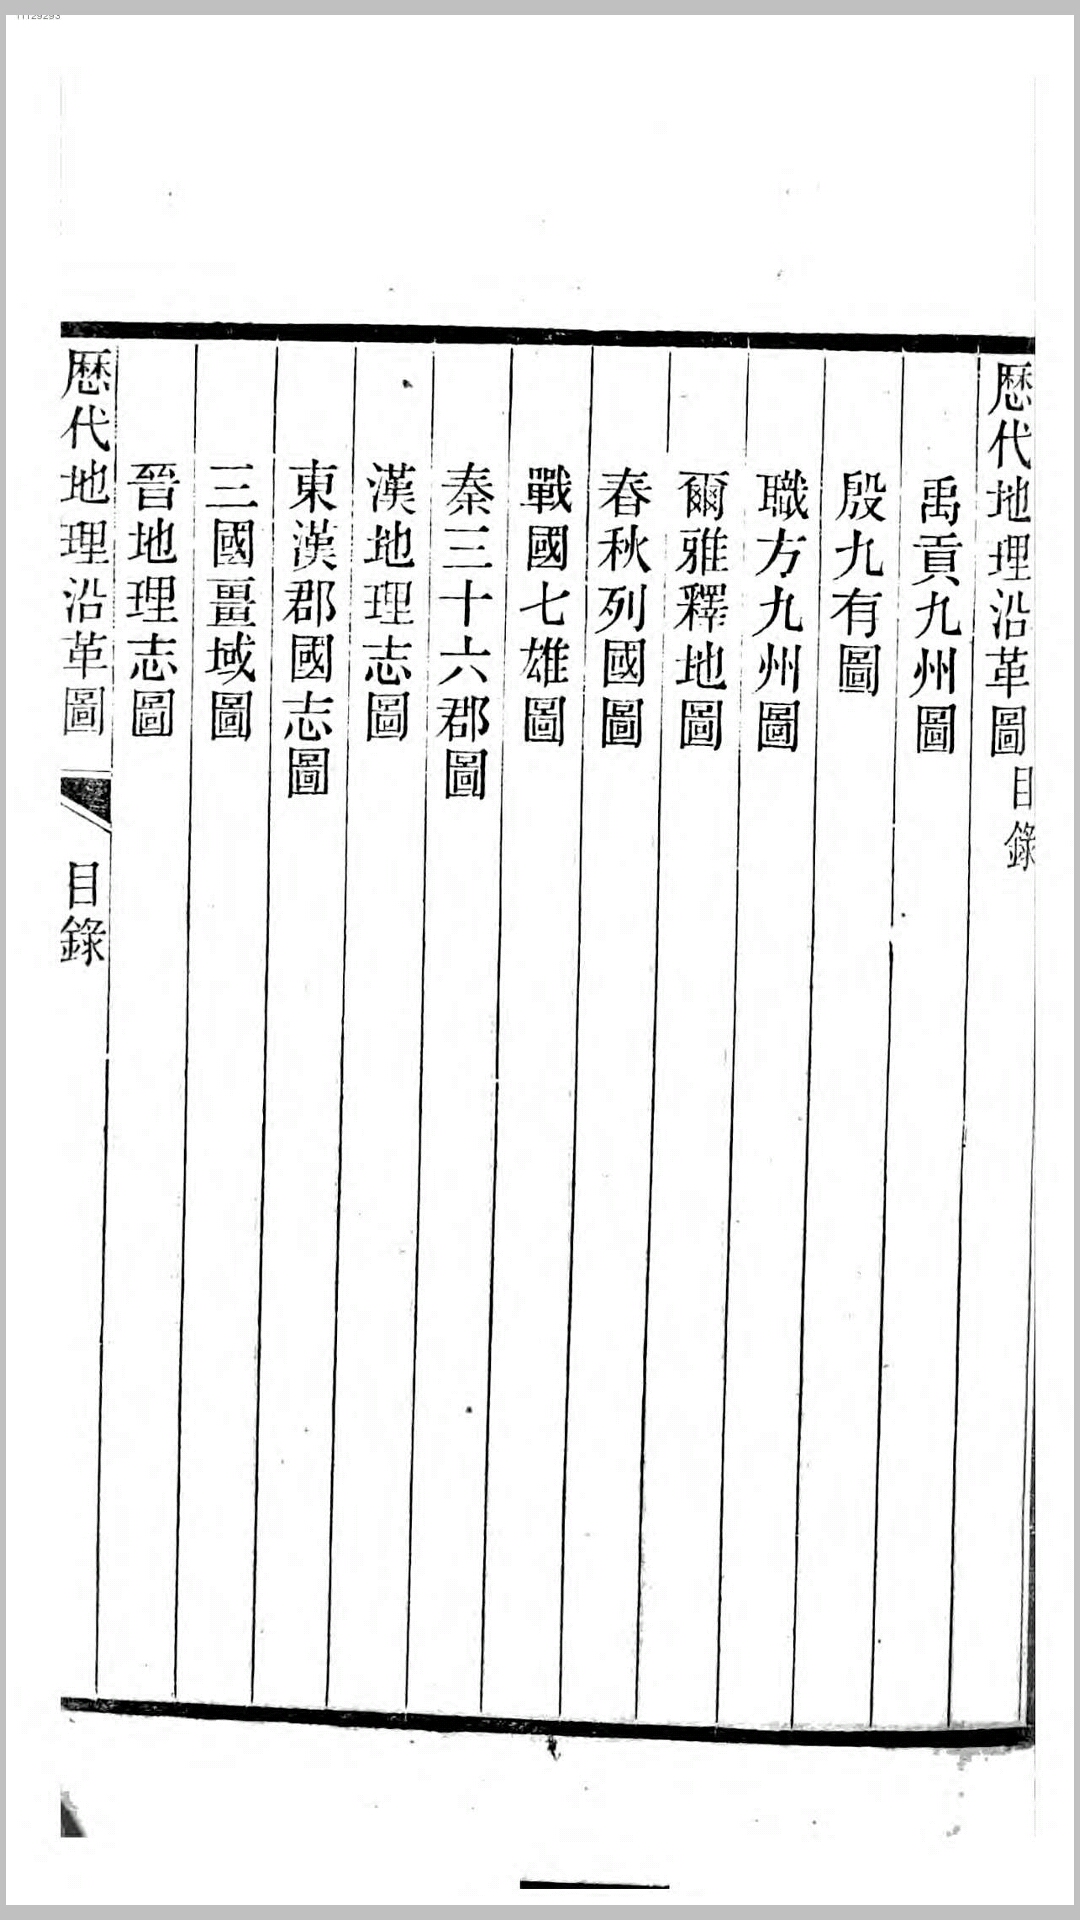 歷代地理沿革圖目錄
禹貢九州圖
殷九有圖
職方九州圖
爾雅釋地圖
春秋列國圖
戰國七雄圖
秦三十六郡圖
漢地理志圖
東漢郡國志圖
三國畺域圖
晉地理志圖
歷代地理沿革圖 目錄